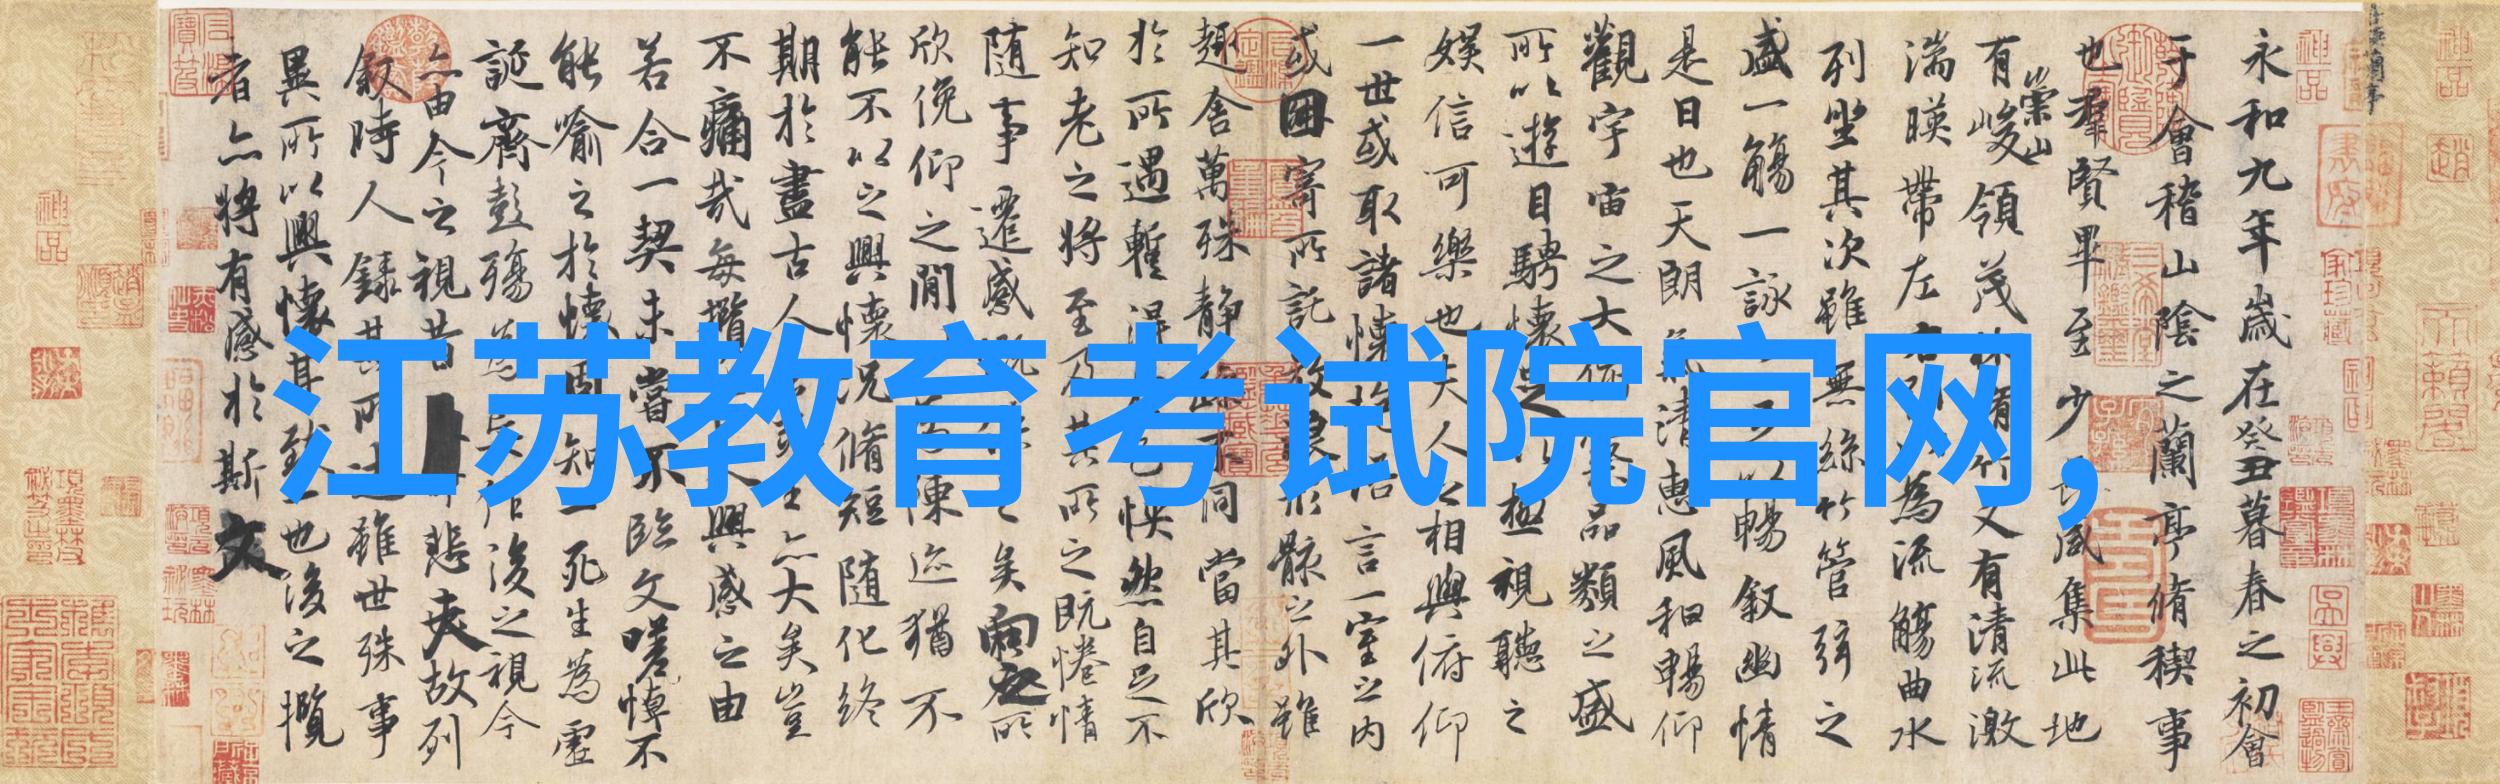 江苏教育考试院官网,
永和九年歲在癸丑暮春之初會
于會稽山陰之蘭亭脩稧事
也羣賢畢至少咸集此地
有崇山峻領茂林脩竹又有清流激
湍暎帶左右為流觴曲水
列坐其次雖無絲竹管弦之
盛一觴一詠以暢叙幽情
是日也天朗氣清惠風和暢仰
觀宇宙之大品類之盛
所以遊目騁懷足極視聽之
娛信可樂也夫人之相與俯仰
一世或取諸懷悟言一室之內
或因寄所託放浪形骸之外雖
趣舍萬殊静不同當其欣
於所遇暫得怏然自足不
知老之將至及其所之既惓情
隨事遷感之矣向之所
欣俛仰之閒陳迹猶不
能不以之興懷況脩短隨化終
期於盡古人亦大矣豈
不痛哉每攬人興感之由
若合一契未嘗不臨文嗟悼不
能喻之於懷固知一死生為虛
誕齊彭殤為作後之視今
亦由今之視昔悲夫故列
叙時人錄其所述雖世殊事
異所以興懷其致一也後之攬
者亦將有感於斯文